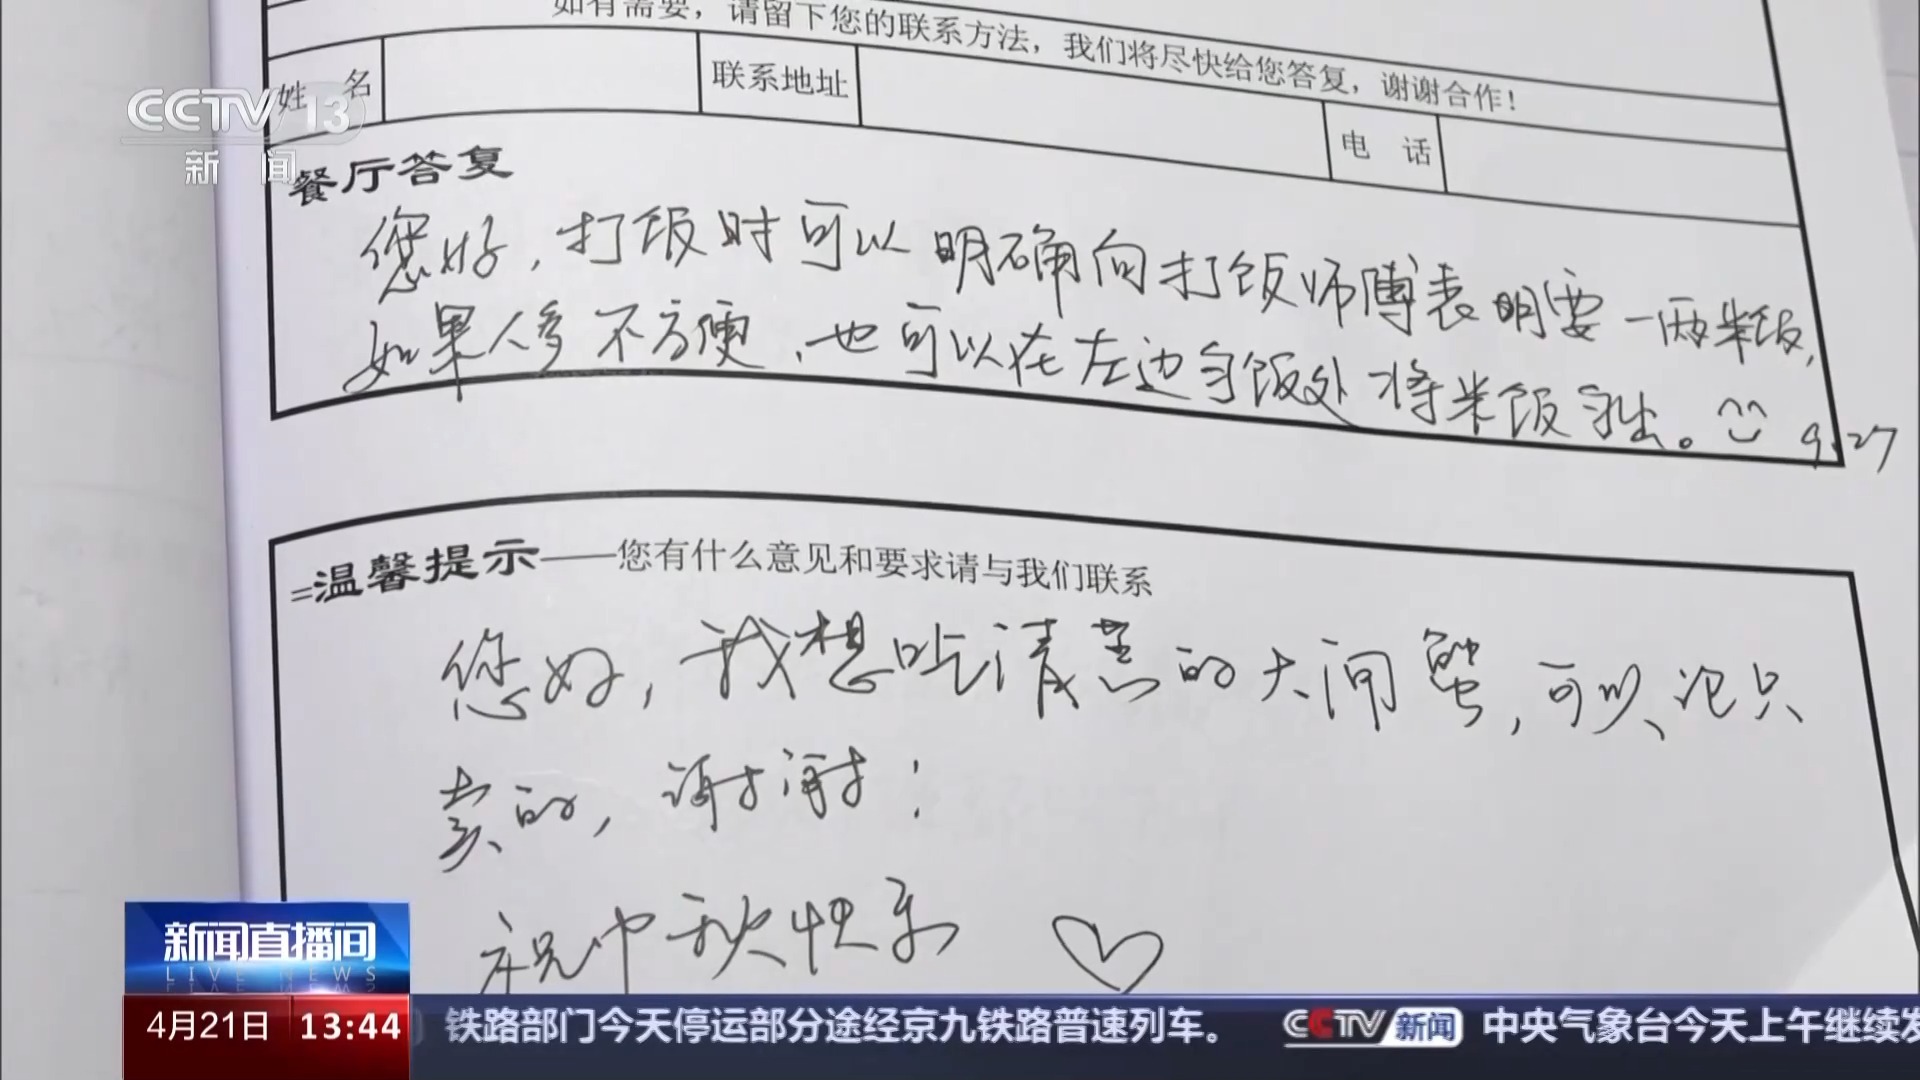 如有需要，请留下您的联系方法，我们将尽快给您答复，谢谢合作！
姓 名
联系地址
电 话
CCTV 13
新 闻
餐厅答复
您好，打饭时可以明确向打饭师傅表明要一两米饭，
如果人多不方便，也可以在左边匀饭处将米饭匀出。 9.27
=温馨提示——您有什么意见和要求请与我们联系
您好，我想吃清蒸的大闸蟹，可以论只
卖的，谢谢！
祝中秋快乐
新闻直播间
LIVE NEWS
4月21日 13:44
铁路部门今天停运部分途经京九铁路普速列车。 CCTV 新闻 中央气象台今天上午继续发